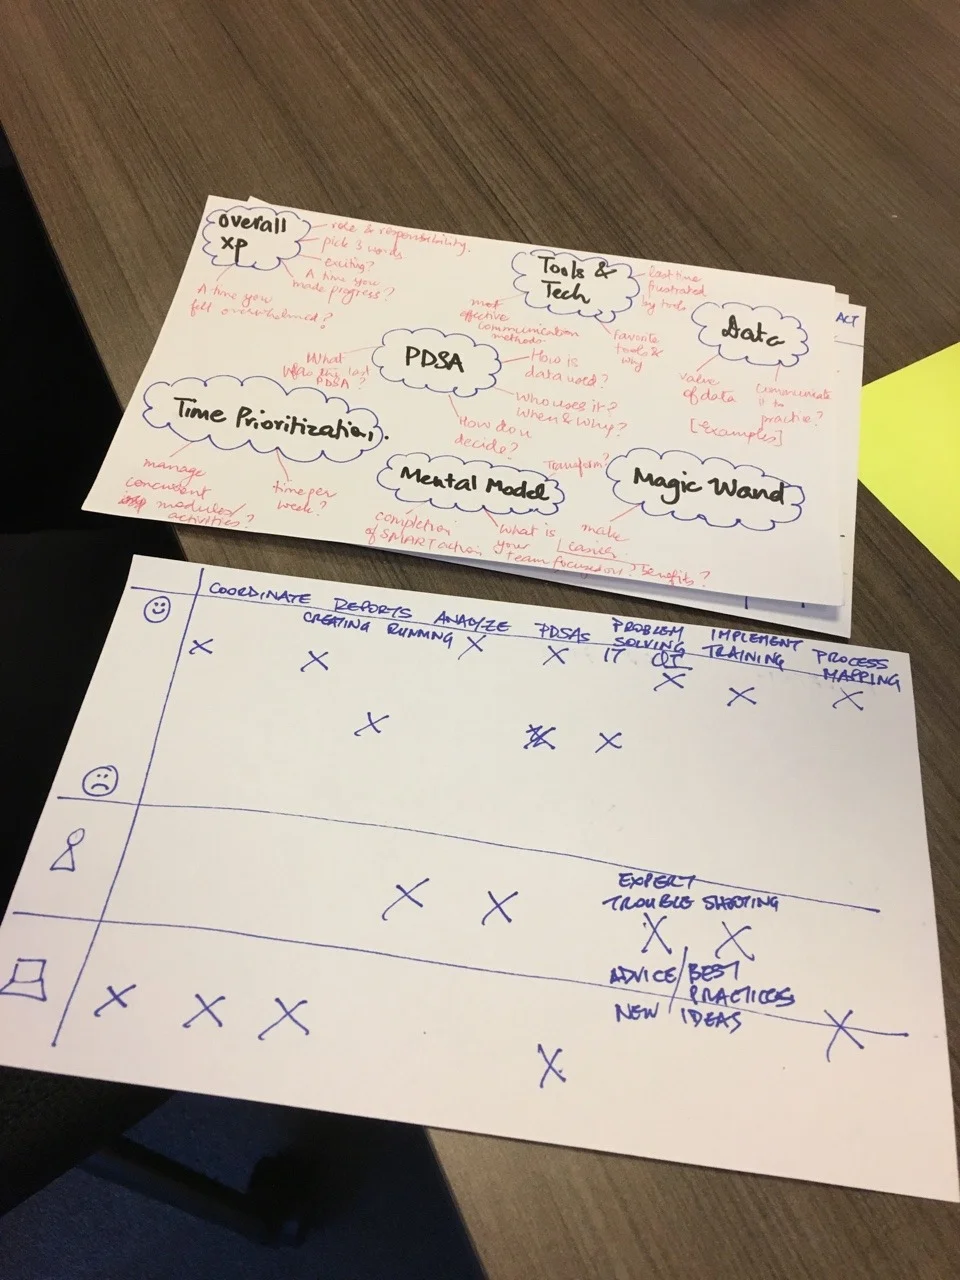 overall
xp
role & responsibility.
pick 3 words
exciting?
A time you
made progress?
A time you
felt overwhelmed?
Tools &
Tech
last time
frustrated
by tools
most
effective
communication
methods
favorite
tools &
why
Data
value
of data
communicate
it to
practice?
[Examples]
ACT
PDSA
What
was the last
PDSA?
How is
data used?
Who uses it?
When & Why?
How do u
decide?
Time Prioritization.
manage
concurrent
modules/
activities?
time per
week?
Mental Model
completion
of SMART action
What is
your
team focused on?
Magic Wand
Transform?
make
easier.
Benefits?
COORDINATE
REPORTS
CREATING RUNNING
ANALYZE
PDSAs
PROBLEM
SOLVING
IT QI
IMPLEMENT
TRAINING
PROCESS
MAPPING
EXPERT
TROUBLE SHOOTING
ADVICE / BEST
PRACTICES
NEW IDEAS